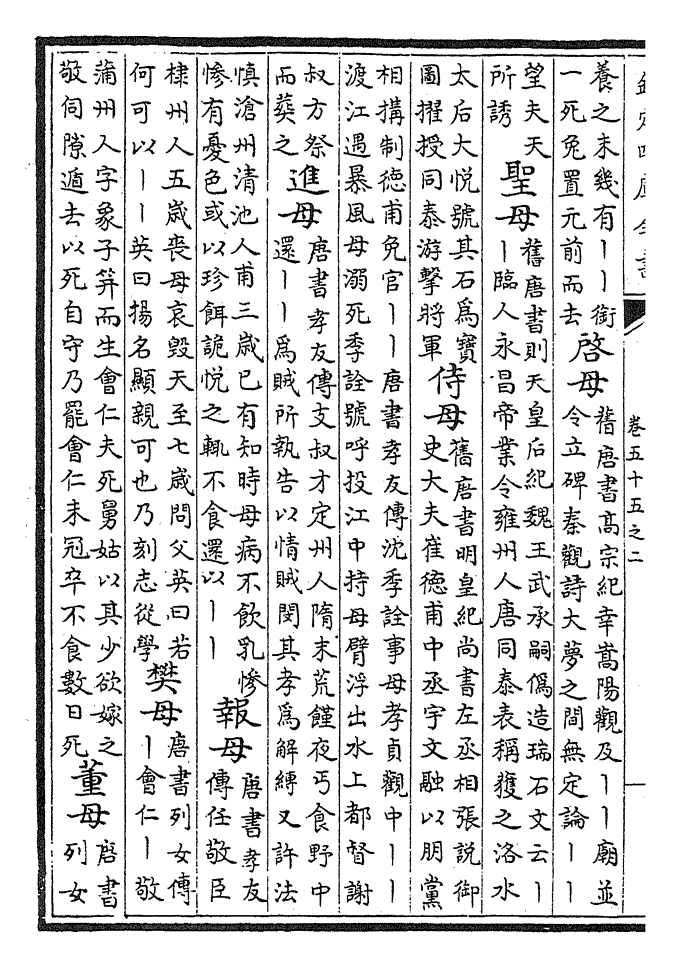 欽定四庫全書
卷五十五之二
養之未幾有丨丨銜
一死兔置元前而去
啓母
舊唐書髙宗紀幸嵩陽觀及丨丨廟並
令立碑秦觀詩大夢之間無定論丨丨
望夫天
所誘
聖母
舊唐書則天皇后紀魏王武承嗣偽造瑞石文云丨
丨臨人永昌帝業令雍州人唐同泰表稱獲之洛水
太后大悅號其石為寶
圖擢授同泰游擊將軍
侍母
舊唐書明皇紀尚書左丞相張說御
史大夫崔德甫中丞宇文融以朋黨
相搆制德甫免官丨丨唐書孝友傳沈季詮事母孝貞觀中丨丨
渡江遇暴風母溺死季詮號呼投江中持母臂浮出水上都督謝
叔方祭
而葬之
進母
唐書孝友傳支叔才定州人隋末荒饉夜丐食野中
還丨丨為賊所執告以情賊閔其孝為解縛又許法
慎滄州清池人甫三歲已有知時母病不飲乳慘
慘有憂色或以珍餌詭悅之輒不食還以丨丨
報母
唐書孝友
傳任敬臣
棣州人五歲喪母哀毀天至七歲問父英曰若
何可以丨丨英曰揚名顯親可也乃刻志從學
樊母
唐書列女傳
丨會仁丨敬
蒲州人字象子笄而生會仁夫死舅姑以其少欲嫁之
敬伺隙遁去以死自守乃罷會仁未冠卒不食數日死
董母
唐書
列女